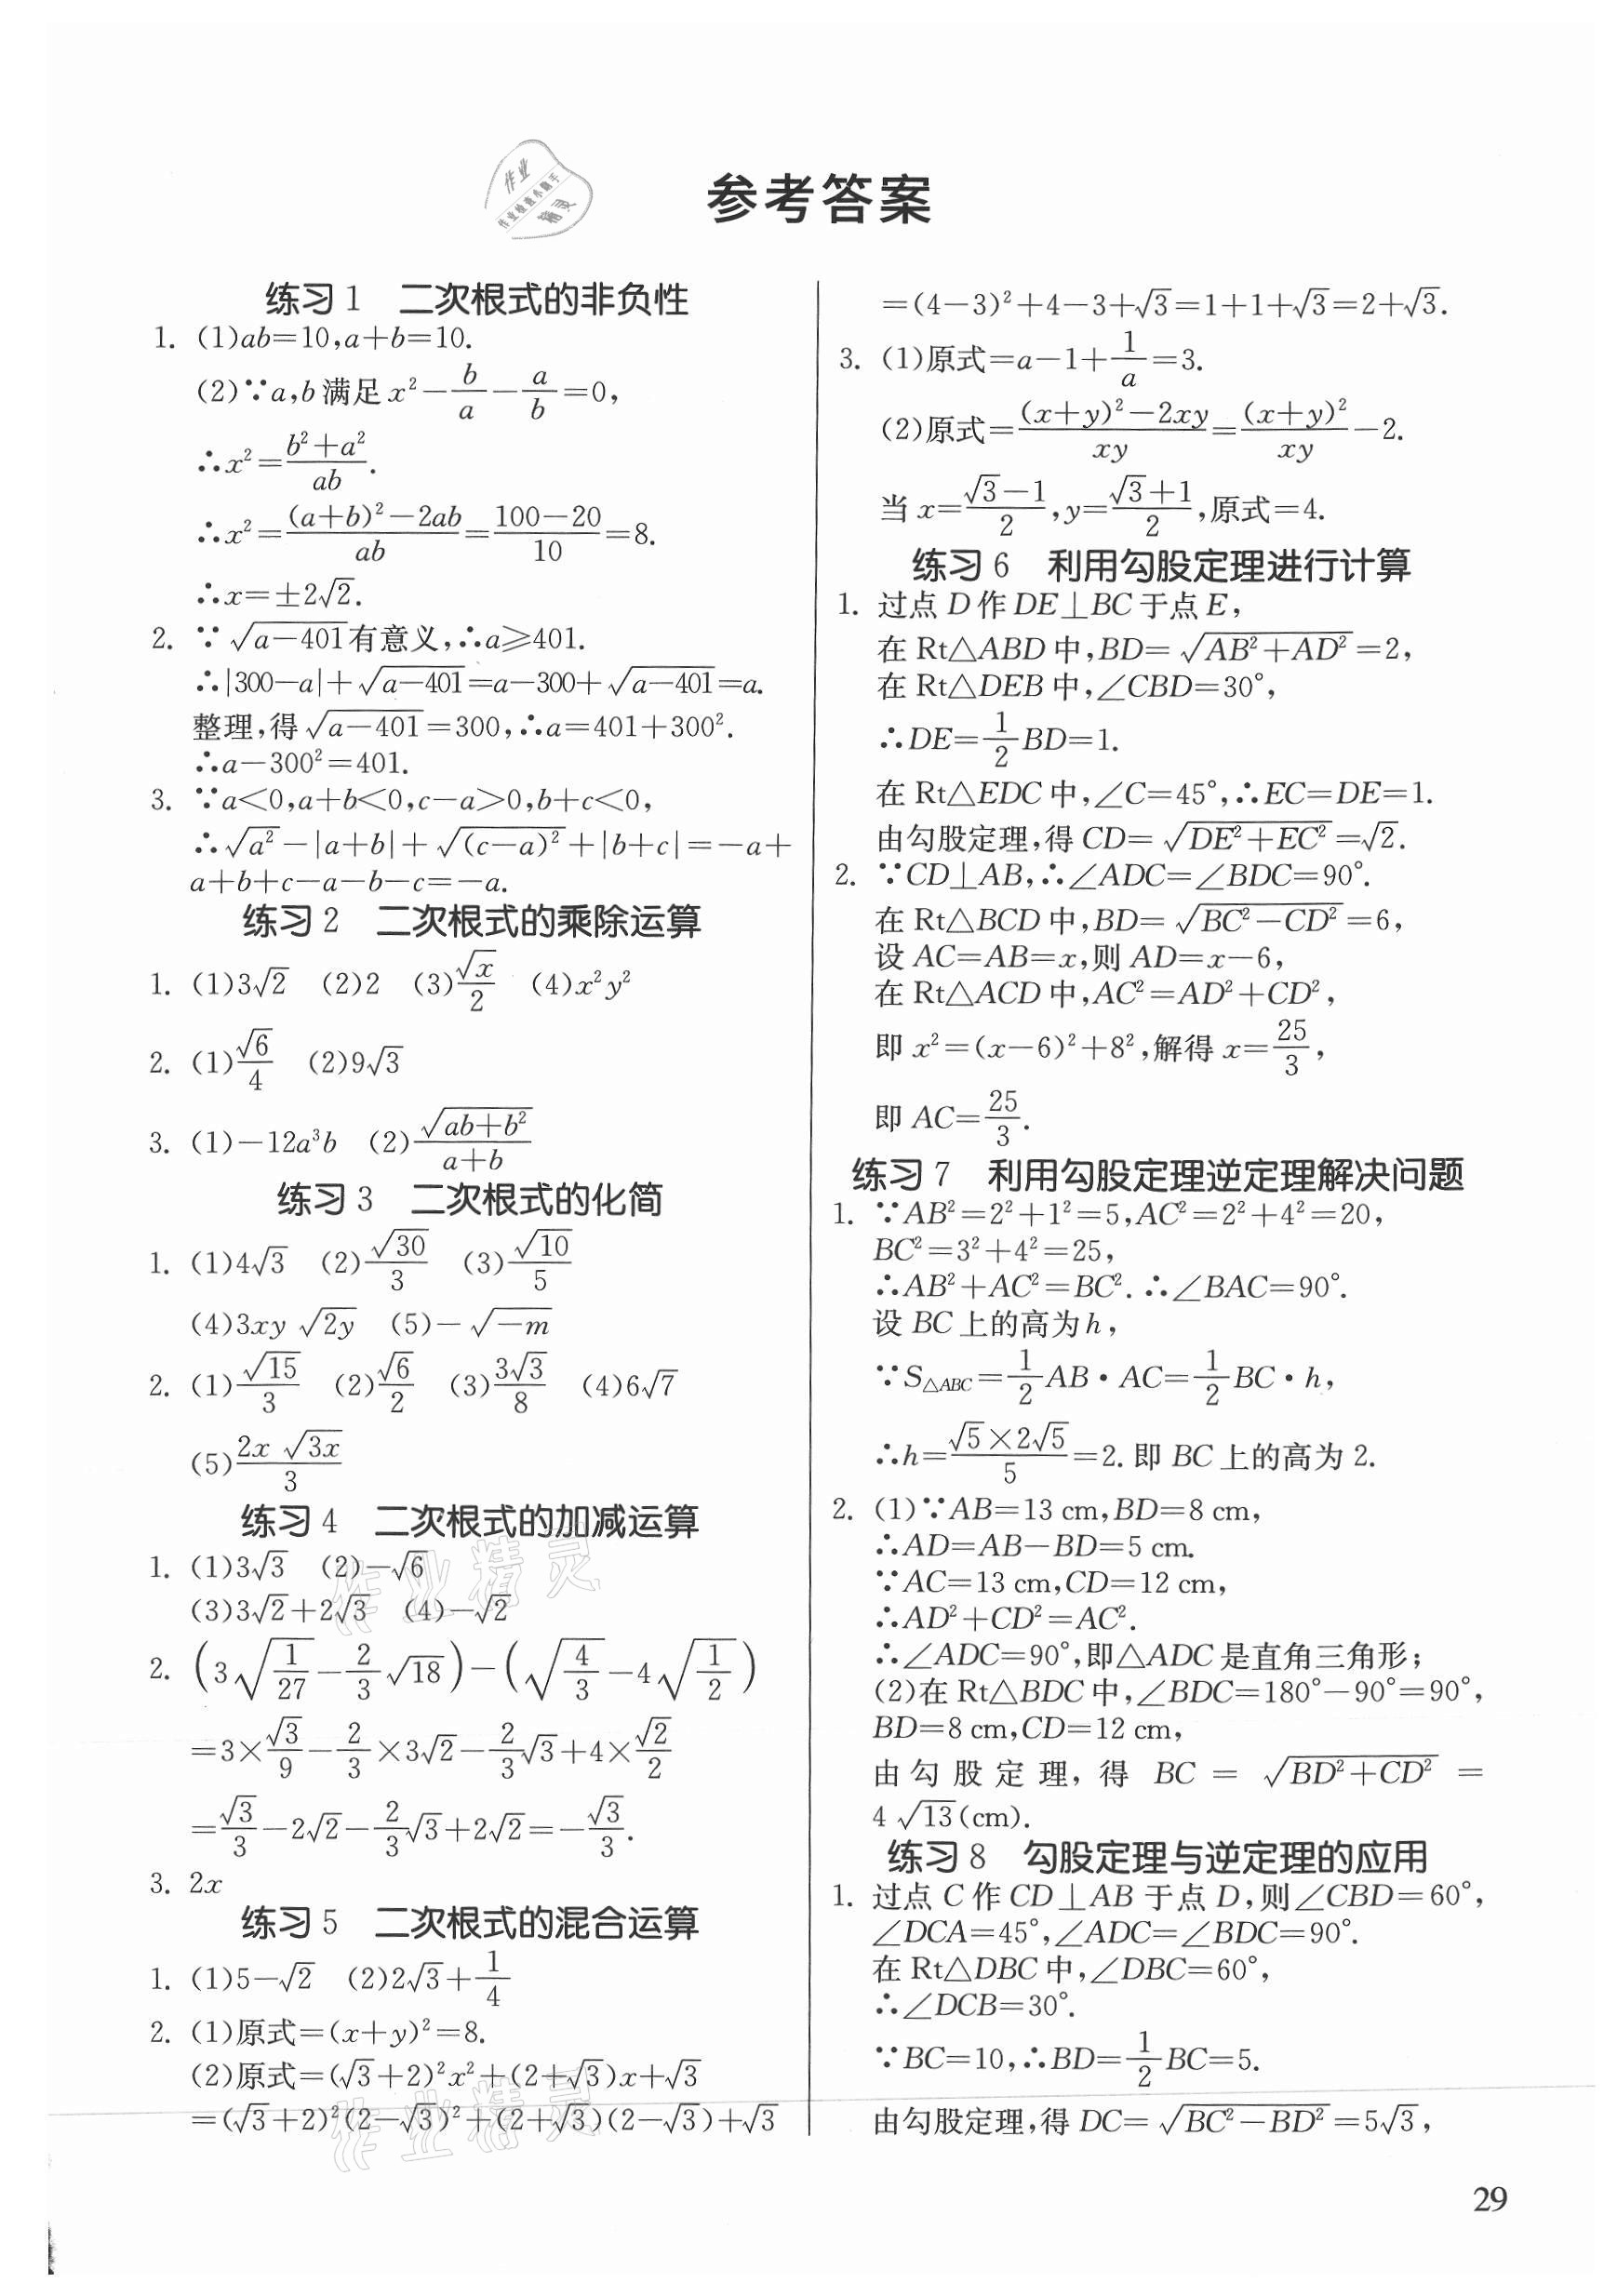 作业
作业检查小助手
精灵
参考答案
练习1 二次根式的非负性
1. (1)ab=10,a+b=10.
(2)∵a,b满足x²-b/a-a/b=0,
∴x²=(b²+a²)/ab.
∴x²=((a+b)²-2ab)/ab=(100-20)/10=8.
∴x=±2√2.
2. ∵√(a-401)有意义,∴a≥401.
∴|300-a|+√(a-401)=a-300+√(a-401)=a.
整理,得√(a-401)=300,∴a=401+300².
∴a-300²=401.
3. ∵a<0,a+b<0,c-a>0,b+c<0,
∴√(a²)-|a+b|+√((c-a)²)+|b+c|=-a+
a+b+c-a-b-c=-a.
练习2 二次根式的乘除运算
1. (1)3√2 (2)2 (3)√x/2 (4)x²y²
2. (1)√6/4 (2)9√3
3. (1)-12a³b (2)√(ab+b²)/(a+b)
练习3 二次根式的化简
1. (1)4√3 (2)√30/3 (3)√10/5
(4)3xy√(2y) (5)-√(-m)
2. (1)√15/3 (2)√6/2 (3)3√3/8 (4)6√7
(5)2x√(3x)/3
练习4 二次根式的加减运算
1. (1)3√3 (2)-√6
(3)3√2+2√3 (4)-√2
2. (3√(1/27)-2/3√18)-(√(4/3)-4√(1/2))
=3×√3/9-2/3×3√2-2/3√3+4×√2/2
=√3/3-2√2-2/3√3+2√2=-√3/3.
3. 2x
练习5 二次根式的混合运算
1. (1)5-√2 (2)2√3+1/4
2. (1)原式=(x+y)²=8.
(2)原式=(√3+2)²x²+(2+√3)x+√3
=(√3+2)²(2-√3)²+(2+√3)(2-√3)+√3
=(4-3)²+4-3+√3=1+1+√3=2+√3.
3. (1)原式=a-1+1/a=3.
(2)原式=((x+y)²-2xy)/xy=(x+y)²/xy-2.
当x=(√3-1)/2,y=(√3+1)/2,原式=4.
练习6 利用勾股定理进行计算
1. 过点D作DE⊥BC于点E,
在Rt△ABD中,BD=√(AB²+AD²)=2,
在Rt△DEB中,∠CBD=30°,
∴DE=1/2BD=1.
在Rt△EDC中,∠C=45°,∴EC=DE=1.
由勾股定理,得CD=√(DE²+EC²)=√2.
2. ∵CD⊥AB,∴∠ADC=∠BDC=90°.
在Rt△BCD中,BD=√(BC²-CD²)=6,
设AC=AB=x,则AD=x-6,
在Rt△ACD中,AC²=AD²+CD²,
即x²=(x-6)²+8²,解得x=25/3,
即AC=25/3.
练习7 利用勾股定理逆定理解决问题
1. ∵AB²=2²+1²=5,AC²=2²+4²=20,
BC²=3²+4²=25,
∴AB²+AC²=BC².∴∠BAC=90°.
设BC上的高为h,
∵S△ABC=1/2AB·AC=1/2BC·h,
∴h=(√5×2√5)/5=2.即BC上的高为2.
2. (1)∵AB=13 cm,BD=8 cm,
∴AD=AB-BD=5 cm.
∵AC=13 cm,CD=12 cm,
∴AD²+CD²=AC².
∴∠ADC=90°,即△ADC是直角三角形;
(2)在Rt△BDC中,∠BDC=180°-90°=90°,
BD=8 cm,CD=12 cm,
由勾股定理,得BC=√(BD²+CD²)=
4√13(cm).
练习8 勾股定理与逆定理的应用
1. 过点C作CD⊥AB于点D,则∠CBD=60°,
∠DCA=45°,∠ADC=∠BDC=90°.
在Rt△DBC中,∠DBC=60°,
∴∠DCB=30°.
∵BC=10,∴BD=1/2BC=5.
由勾股定理,得DC=√(BC²-BD²)=5√3,
作业精灵
作业精灵
29